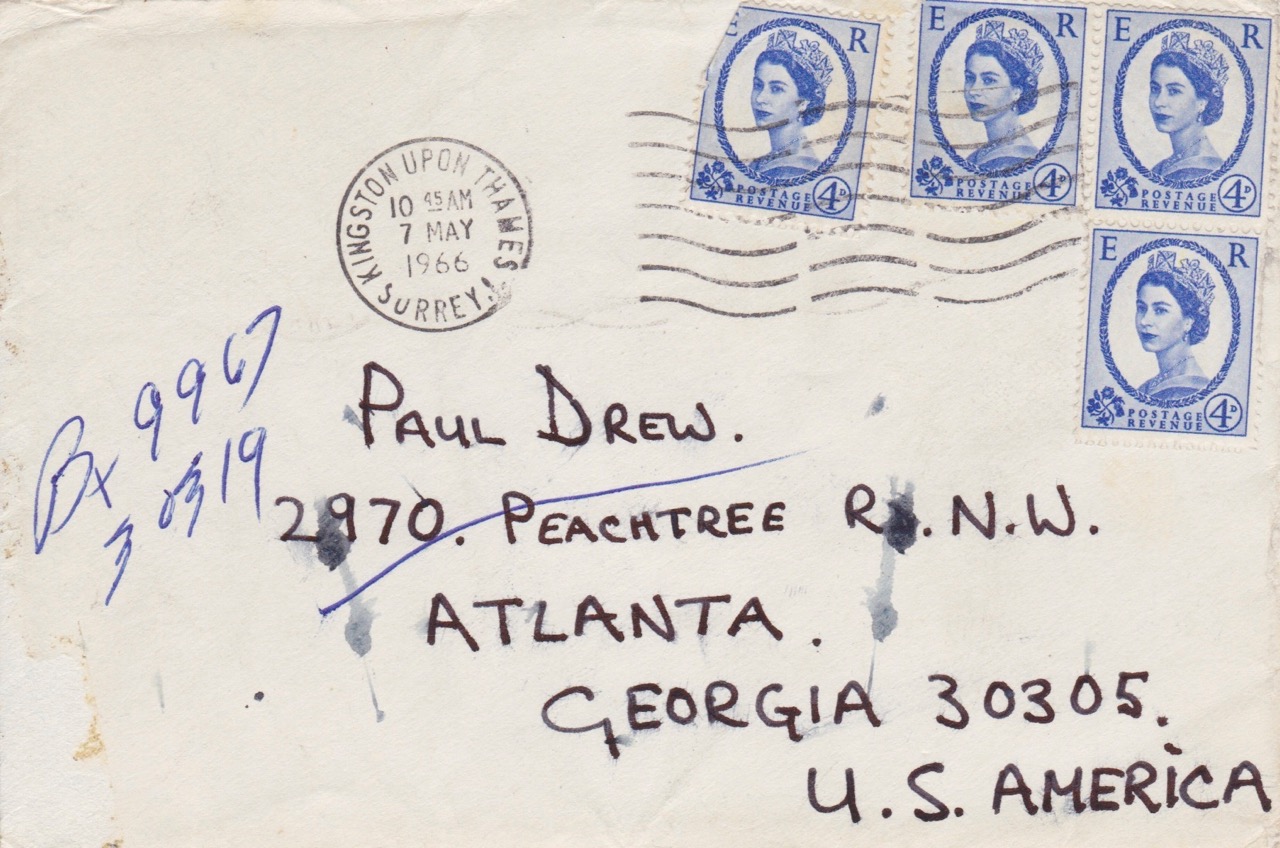 E R
POSTAGE
REVENUE 4D
E R
POSTAGE
REVENUE 4D
E R
POSTAGE
REVENUE 4D
E R
POSTAGE
REVENUE 4D
KINGSTON UPON THAMES
10 45 AM
7 MAY
1966
SURREY.
Bx 9967
30319
PAUL DREW.
2970. PEACHTREE RD. N.W.
ATLANTA.
GEORGIA 30305.
U.S. AMERICA